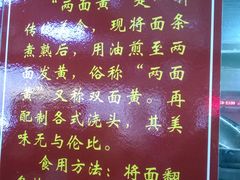 "两面黄"是
传 美食 现将面条
煮熟后，用油煎至两
面发黄，俗称"两面
黄"又称双面黄。再
配制各式浇头，其美
味无与伦比。
食用方法：将面翻